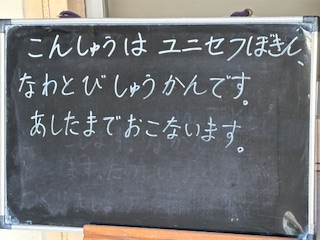 こんしゅうは ユニセフぼきん、
なわとびしゅうかんです。
あしたまでおこないます。